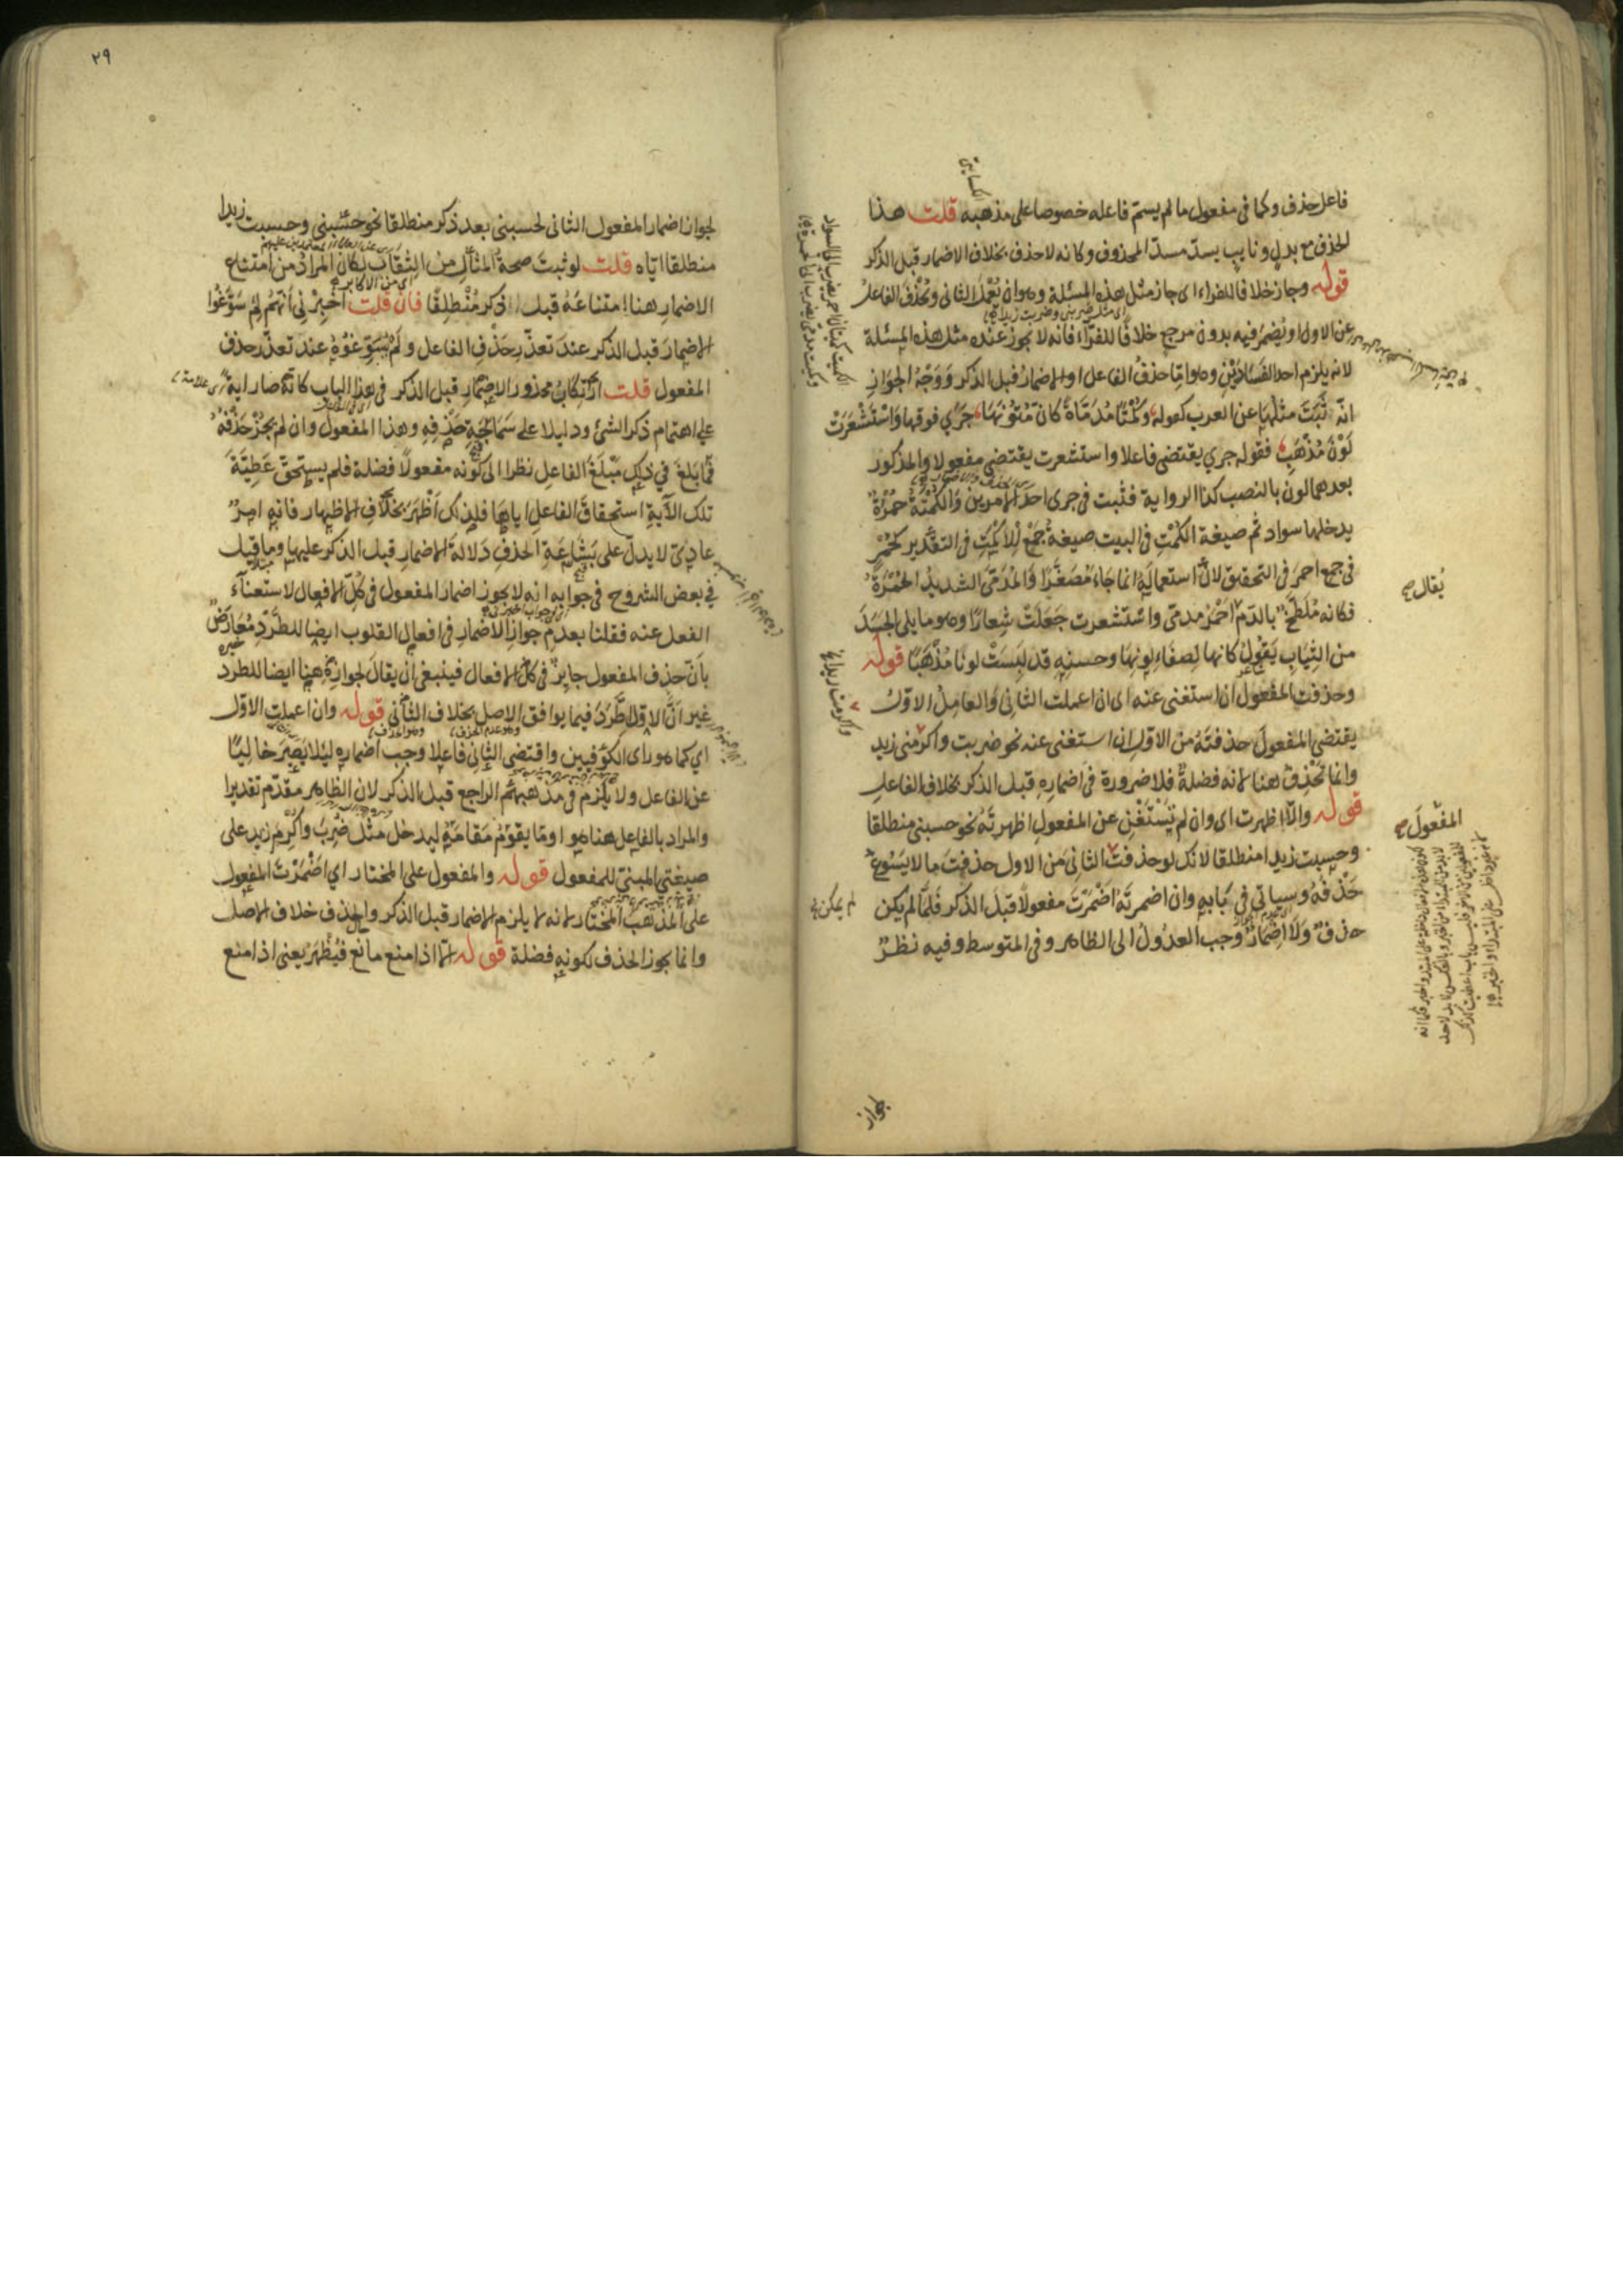 فاعل حذف وكما فى مفعول ما لم يسم فاعله خصوصا على مذهبه قلت هذا
الحذف مع بدل ونايب يسد مسد المحذوف وكانه لا حذف بخلاف الاضمار قبل الذكر
قوله وجاز خلافا للفراء اى جاز مثل هذه المسئلة وهو ان يُعْمَلَ الثانى ويُحْذَفَ الفاعلُ
عن الاول او يُضمَرَ فيه بدون مرجع خلافًا للفرّاء فانه لا يجوز عنده مثل هذه المسئلة
لانه يلزم احد الفسادَيْنِ وهو امّا حذفُ الفاعل او الاضمارُ قبل الذكر وَوَجْهُ الجوازِ
انّه ثَبَتَ مثلها عن العرب كقوله وَكُمْتًا مُدَمَّاةً كَانَ مُتُونَهَا جَرَي فوقها وَاسْتَشْعَرَتْ
لَوْنَ مُذْهَبِ فقوله جري يقتضى فاعلا واستشعرت يقتضى مفعولا والمذكور
بعدهما لون بالنصب كذا الرواية فثبت فى جرى احد الامرين وَالكُمْتَةُ حُمْرَةٌ
يدخلها سواد ثم صيغة الكُمْتِ فى البيت صيغةُ جَمْعِ لِاَكْمَتِ فى التقدير كحُمْرٍ
فى جمع احمرَ فى التحقيق لانّ استعماله انما جَاءَ مُصَغَّرًا وَالمُدَمَّى الشديدُ الحُمْرَةِ
فكانه مُلَطَّخٌ بالدّم احْمَرُ مدمّى واستشعرت جَعَلَتْ شِعارًا وهو ما يلى الجَسَدَ
من الثِّيَابِ يَقُولُ كانها لِصفَاءِ لونِهَا وحسنِهِ قد لَبِسَتْ لونًا مُذْهَبًا قوله
وحذفت المفعول ان استغنى عنه اى ان اعملت الثانى وَالعامِلُ الاوّلُ
يقتضى المفعولَ حذفتَهُ من الاوّل ان استغنى عنه نحو ضربت واكرمنى زيد
وانما تُحْذَفُ هنا لانه فضلةٌ فلا ضرورة فى اضمارِهِ قبل الذكر بخلاف الفاعل
قوله والّا اظهرت اى وان لم يَسْتَغْنِ عن المفعولِ اظهرتَه نحو حسبنى منطلقا
وحسبت زيدا منطلقا لانك لو حذفت الثانى من الاول حذفتَ ما لا يَسُوغُ
حَذْفُهُ وسياتى فى بَابِهِ وان اضمرتَه اضْمَرْتَ مفعولًا قبلَ الذكر فَلَمّا لم يكن
حذفٌ وَلَا اضمارٌ وَجب العدُولُ الى الظاهر وفى المتوسط وفيه نظرٌ
يُقال صح
المفعولَ صح
لم يمكن
لجواز
٢٩
لجواز اضمار المفعول الثانى لحسبنى بعد ذكر منطلقا نحو حسبنى وحسبت زيدا
منطلقا اياه قلت لو ثبت صحة المثال من الثِّقات لكان المراد من امتناع
الاضمارِ هنا امتناعَهُ قبلَ ذكر مُنْطلِقًا فان قلت اَخْبِرْنِى اَنّهُمْ لِمَ سَوَّغُوا
الاضمارَ قبل الذكر عندَ تعذّر حَذْفِ الفاعل ولَمْ يُسَوِّغُوْهُ عند تعذّر حذف
المفعول قلت ارْتِكَابُ محذور الاضمارِ قبل الذكر فى هذا الباب كانّه صار اية
على اهتمام ذكر الشئ ودليلا على سَمَاجَةِ حَذْفِهِ وهذا المفعول وان لم يجُزْ حَذْفُهُ
فما بَلَغَ في ذلك مَبْلَغَ الفاعلِ نظرا الى كَونه مفعولًا فضلة فلم يستحقّ عَطِيَّةَ
تلك الآيةِ استحقاقَ الفاعلِ اياها فلذلك اَظْهَرَ بخلافِ الاظهار فانه امرٌ
عادىّ لا يدلّ على بَشَاعَةِ الحذفِ دَلالةَ الاضمارِ قبل الذكر عليها وما قيل
في بعض الشروح فى جوابه انه لا يجوز اضمار المفعول فى كُلّ الافعال لاستغناء
الفعل عنه فقلنا بعدم جوازِ الاضمارِ فى افعال القلوب ايضا للطَّرْدِ مُعَارَضٌ
بانّ حذف المفعول جايزٌ فى كلّ الافعال فينبغى ان يقالَ لجوازِهِ هنا ايضا للطرد
غير انّ الاوّلَ طَرْدٌ فيما يوافق الاصل بخلاف الثانى قوله وان اعملت الاوّل
اي كما هو راى الكوفيين واقتضى الثانى فاعلا وجب اضماره ليلا يَصيرَ خاليًا
عن الفاعل ولا يلزم فى مذهبهم الراجع قبل الذكر لان الظاهر مقدّم تقديرا
والمراد بالفاعل هنا هو او ما يقوْمُ مَقامَهُ ليدخل مثل ضُرِبَ واُكْرِمَ زيد على
صيغتى المبنىّ للمفعول قوله والمفعول على المختار اي اَضْمَرْتَ المفعول
على المذهب المختار لانه لا يلزم الاضمار قبل الذكر والحذف خلاف الاصل
وانما يجوز الحذف لكونه فضلة قوله الّا اذا منع مانع فيُظْهَرُ يعنى اذا منع